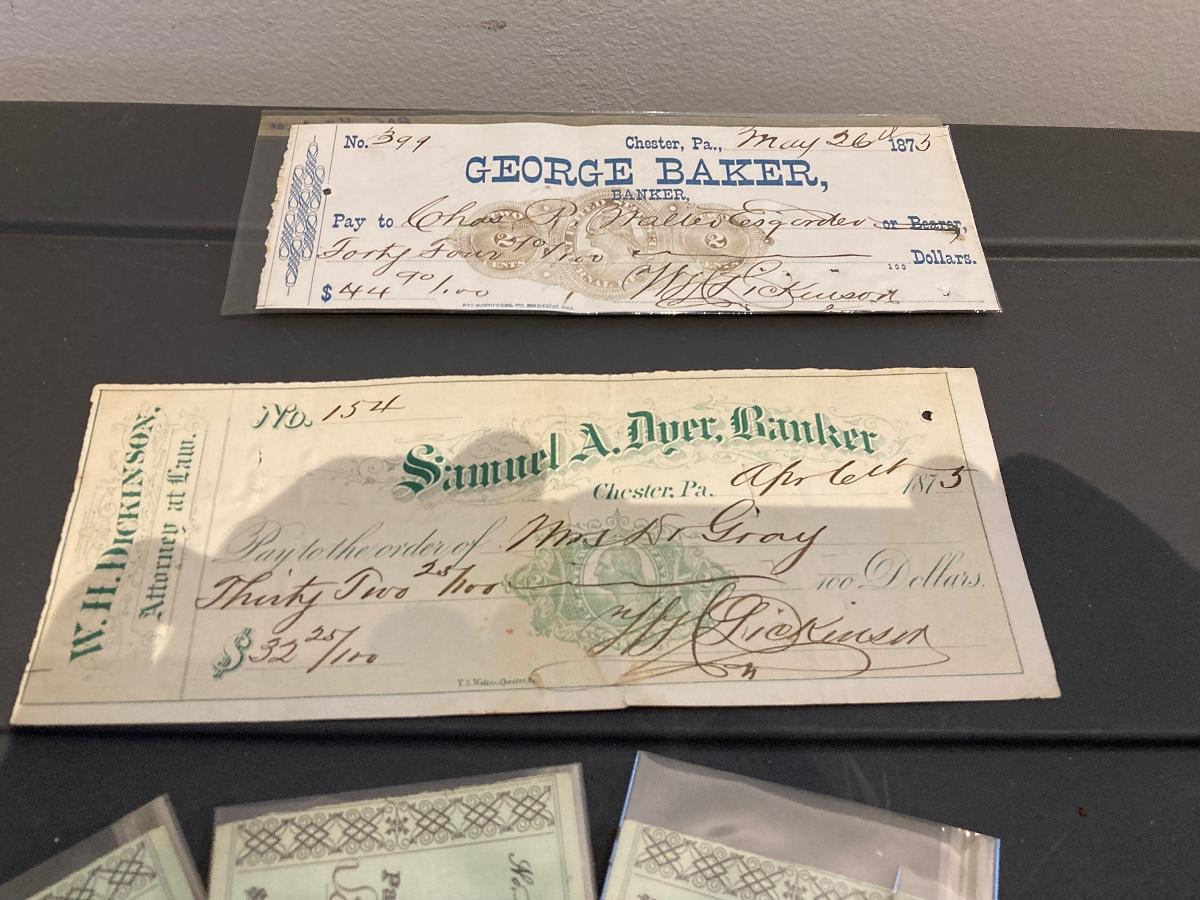 No. 399 Chester, Pa., May 26th 1875
GEORGE BAKER,
BANKER,
Pay to Chas R. Walter Esq order or Bearer,
Forty Four 90/100 100 Dollars.
$44 90/100 WH Dickinson
2 CENTS 2
W. H. DICKINSON,
Attorney at Law.
No. 154
Samuel A. Dyer, Banker
Chester, Pa. Apr 6th 1875
Pay to the order of Mrs Dr Gray
Thirty Two 25/100 100 Dollars.
$32 25/100 WH Dickinson
Y. S. Walter, Chester, Pa.
No.
Pa